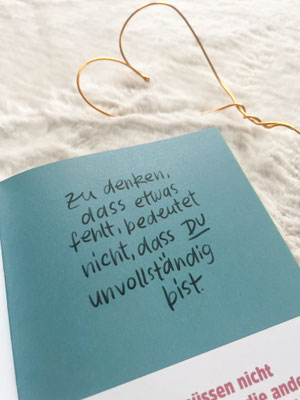 Zu denken,
dass etwas
fehlt, bedeutet
nicht, dass DU
unvollständig
bist.
müssen nicht
die ande